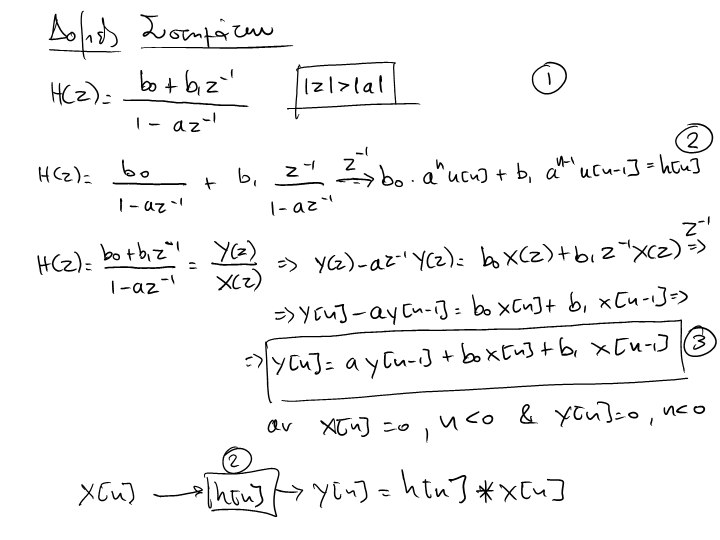 Δομές Συστημάτων
H(z) = \frac{b_0 + b_1 z^{-1}}{1 - a z^{-1}} |z| > |a| ①
H(z) = \frac{b_0}{1 - a z^{-1}} + b_1 \frac{z^{-1}}{1 - a z^{-1}} \xrightarrow{Z^{-1}} b_0 · a^n u[n] + b_1 a^{n-1} u[n-1] = h[n] ②
H(z) = \frac{b_0 + b_1 z^{-1}}{1 - a z^{-1}} = \frac{Y(z)}{X(z)} ⇒ Y(z) - a z^{-1} Y(z) = b_0 X(z) + b_1 z^{-1} X(z) \xRightarrow{Z^{-1}}
⇒ y[n] - a y[n-1] = b_0 x[n] + b_1 x[n-1] ⇒
⇒ y[n] = a y[n-1] + b_0 x[n] + b_1 x[n-1] ③
αν x[n] = 0, n < 0 & y[n] = 0, n < 0
②
x[n] → h[n] → y[n] = h[n] * x[n]